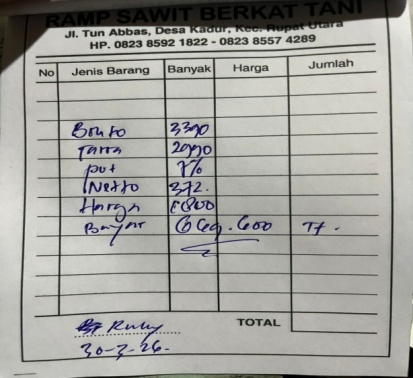 RAMP SAWIT BERKAT TANI
Jl. Tun Abbas, Desa Kadur, Kec. Rupat Utara
HP. 0823 8592 1822 - 0823 8557 4289
No Jenis Barang Banyak Harga Jumlah
Bruto 3390
Tarra 2990
pot 7%
Netto 372.
Harga 1800
Bayar 669.600 Tf.
TOTAL
30-3-26.